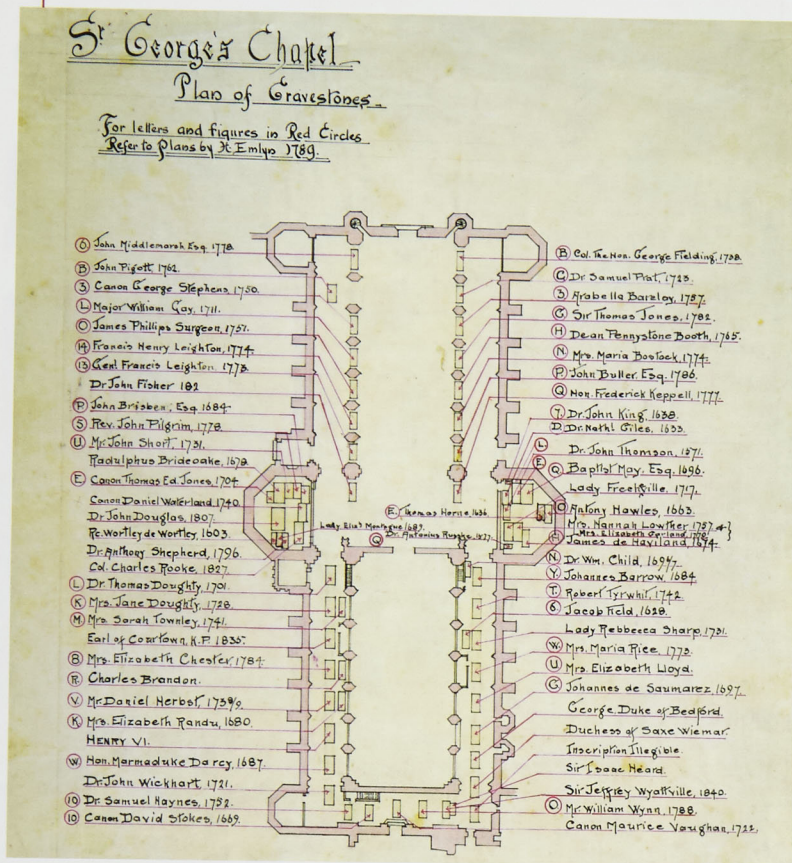 St George's Chapel
Plan of Gravestones
For letters and figures in Red Circles
Refer to Plans by H. Emlyn 1789.
6 John Middlemarsh Esq. 1778
B John Pigott 1762.
3 Canon George Stephens, 1750.
L Major William Gay, 1711.
O James Phillips Surgeon, 1757.
14 Francis Henry Leighton, 1774
13 Genl Francis Leighton. 1773.
Dr John Fisher 182
P John Brisben, Esq. 1684
S Rev. John Pilgrim, 1778.
U Mr. John Short, 1731.
Radulphus Brideoake, 1678
E Canon Thomas Ed. Jones, 1704
Canon Daniel Waterland 1740.
Dr John Douglas, 1807.
Re. Wortley de Wortley, 1603.
Dr. Anthony Shepherd, 1796.
Col. Charles Rooke, 1827.
L Dr. Thomas Doughty, 1701.
K Mrs. Jane Doughty, 1728.
M Mrs. Sarah Townley, 1741.
Earl of Courtown, K.P. 1835.
8 Mrs. Elizabeth Chester, 1784
R Charles Brandon.
V Mr. Daniel Herbst, 1739/0.
K Mrs. Elizabeth Randu, 1680.
HENRY VI.
W Hon. Marmaduke Darcy, 1687.
Dr. John Wickhart, 1721.
19 Dr. Samuel Haynes, 1752.
10 Canon David Stokes, 1669.
E Thomas Horne, 1636.
Lady Eliz. Montague 1689.
Q Dr. Antonius
B Col. The Hon. George Fielding, 1738.
C Dr. Samuel Prat, 1723.
3 Arabella Barzley, 1757.
G Sir Thomas Jones, 1782.
H Dean Pennystone Booth, 1765.
N Mrs. Maria Bostock, 1774.
P John Buller. Esq. 1786.
Q Hon. Frederick Keppell, 1777.
7 Dr. John King, 1638.
D Dr. Nathl Giles, 1633.
L Dr. John Thomson, 1571.
E Q Baptist May. Esq. 1696.
Lady Freshville, 1717.
O Antony Hawles, 1663.
Mrs. Hannah Lowther 1757
Mrs. Elizabeth
James de Haviland, 1674.
N Dr. Wm. Child, 1697.
Y Johannes Barrow, 1684
T Robert Tyrwhit, 1742.
6 Jacob Field, 1628.
Lady Rebbecca Sharp, 1731.
W Mrs. Maria Rice, 1773.
U Mrs. Elizabeth Lloyd.
G Johannes de Saumarez, 1697.
George, Duke of Bedford.
Duchess of Saxe Wiemar.
Inscription Illegible.
Sir Isaac Heard.
Sir Jeffrey Wyattville, 1840.
O Mr. William Wynn, 1788.
Canon Maurice Vaughan, 1722.